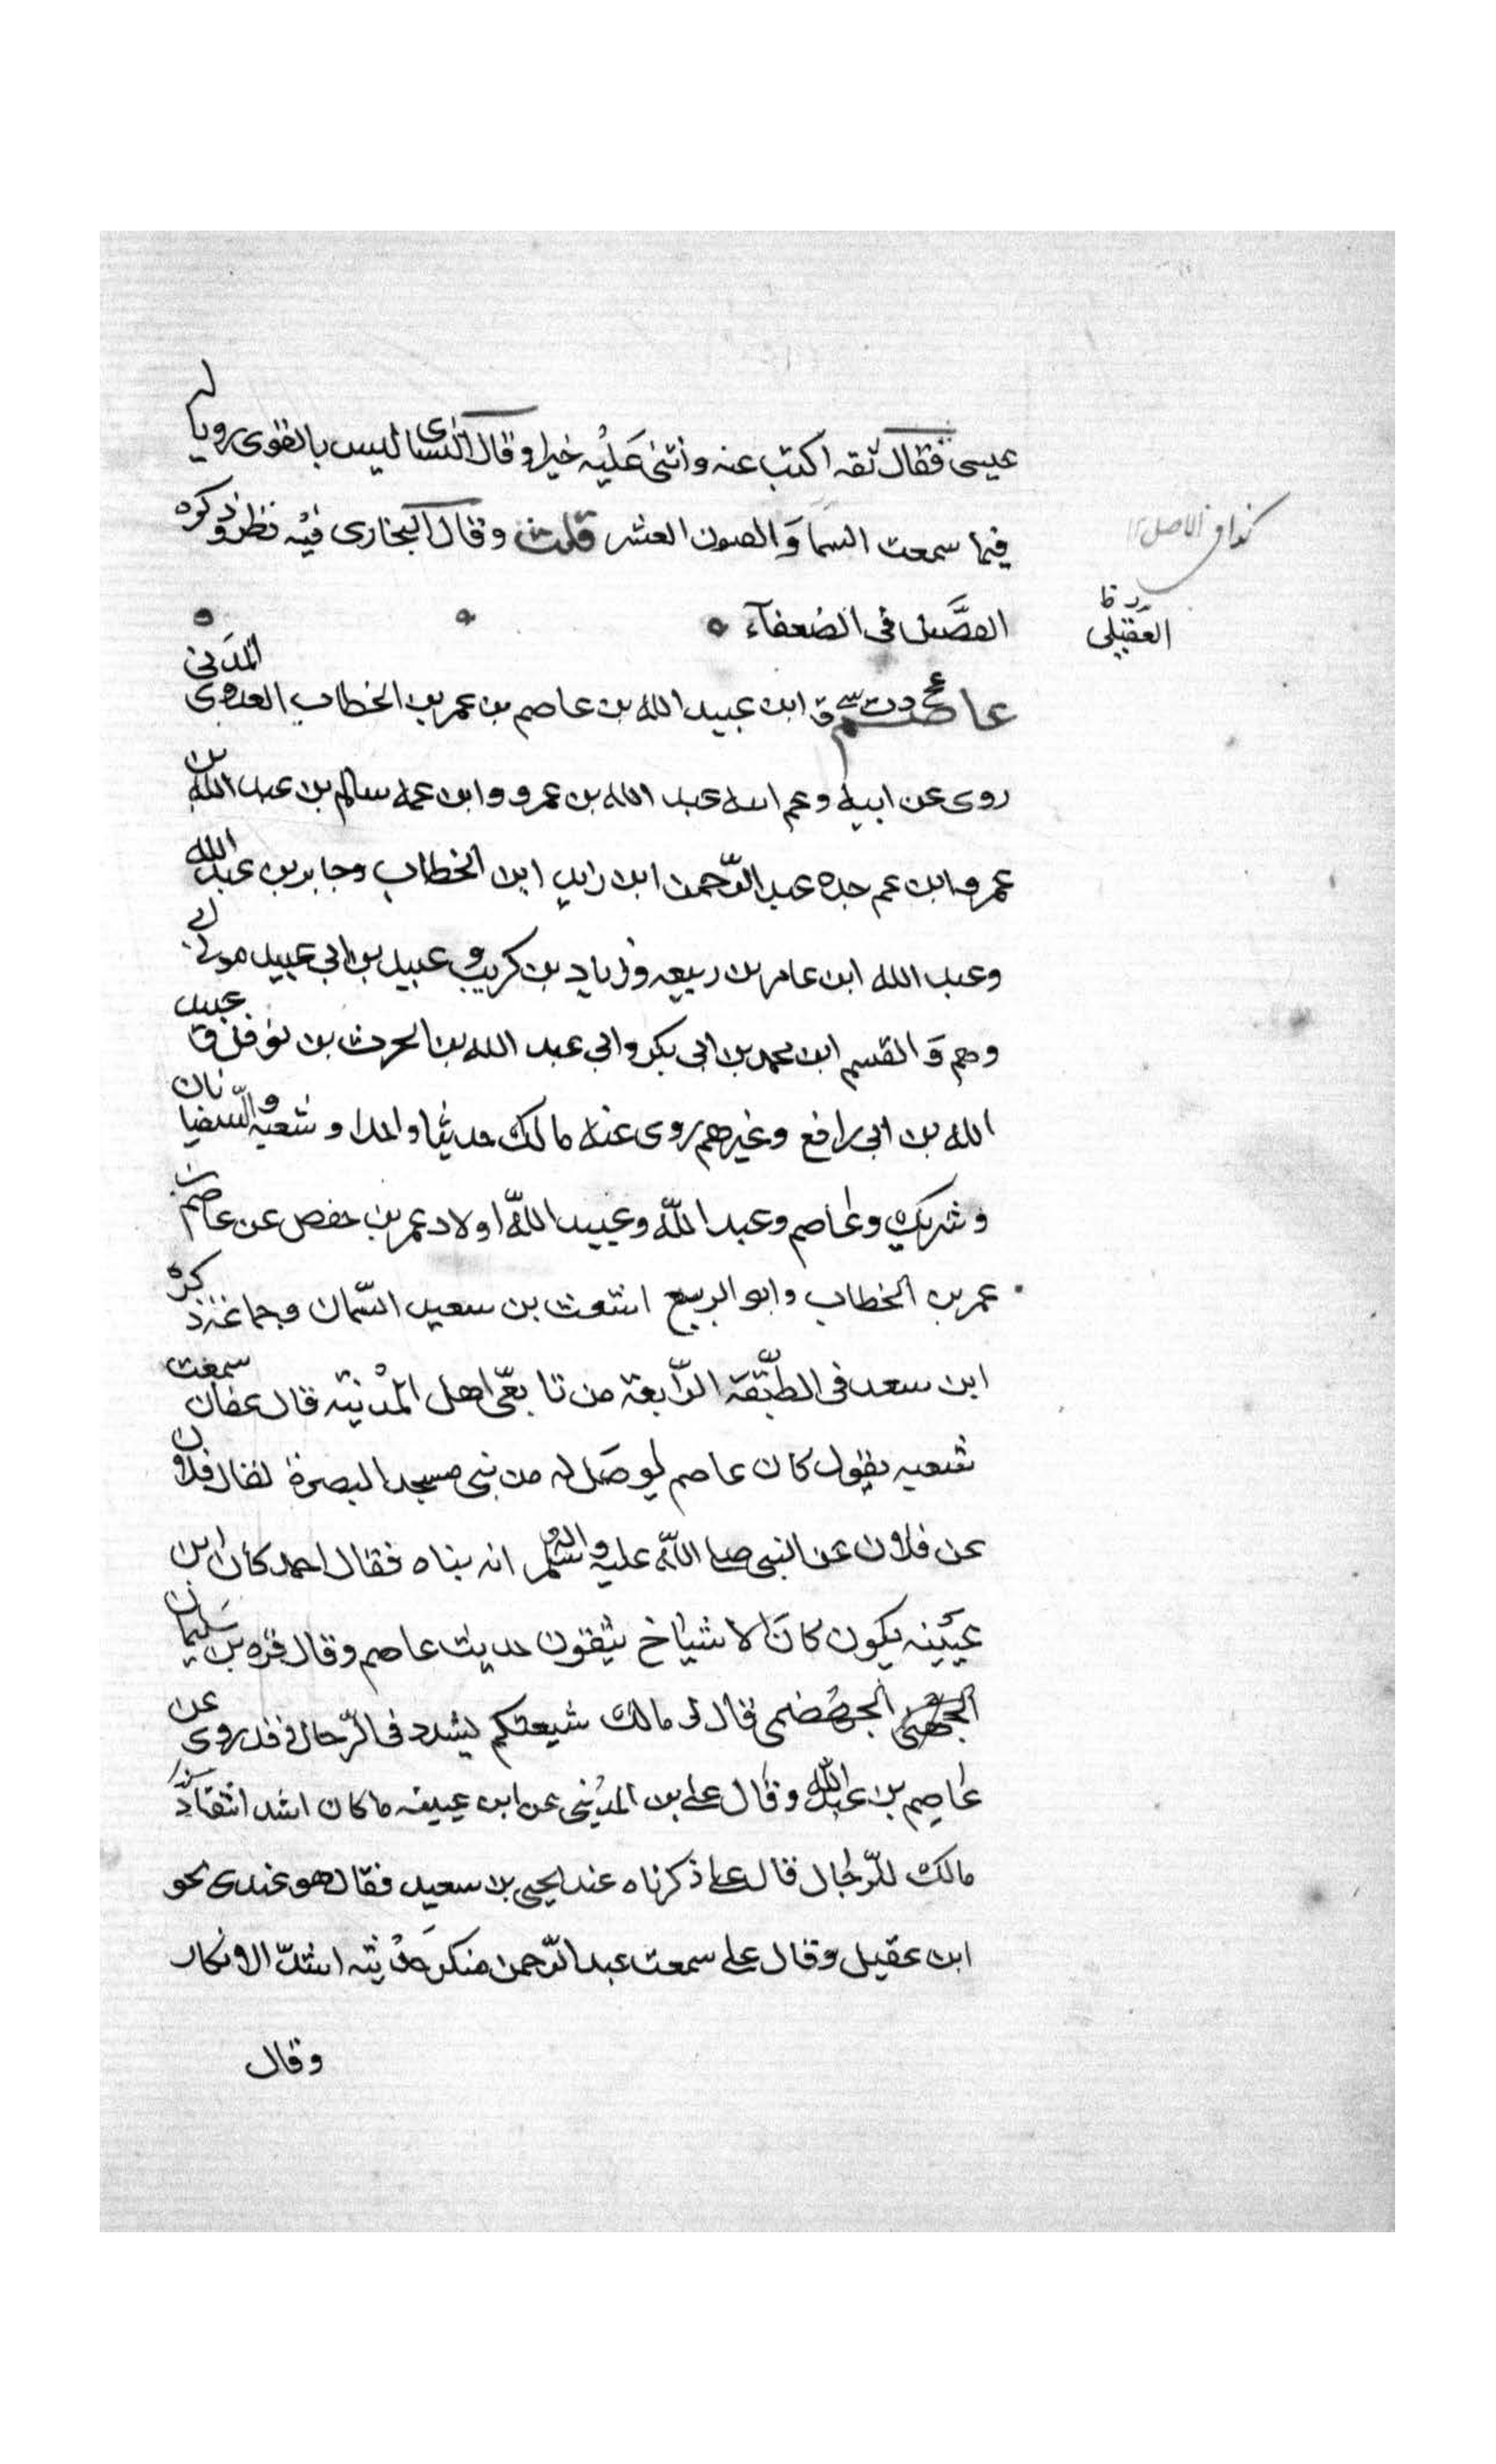 عيسى فقال ثقه اكتب عنه واثنى عَليْه خيرا وقال النسائى ليس بالقوى رويا له
فيما سمعت السمَا وَالعيون العشر قلت وقال البخارى فيْه نظر وذكره
كذا فى الاصل
العقيلى ظ
العصَّيل فى الضعفآء
عاصم عخ د ت سى ق ابن عبيد الله بن عاصم بن عمر بن الخطاب العدوى المدَنى
روى عن ابيه وعم ابيه عبد الله بن عمرو وابن عمه سالم بن عبد الله بن
عمر وابن عم جده عبد الرّحمن ابن زايد ابن الخطاب وجابر بن عبد الله
وعبد الله ابن عامر بن ربيعه وزياد بن كريب و عبيد بن ابى عبيد مولى ابى
وهم وَالقسم ابن محمد بن ابى بكر وابي عبد الله بن الحرث بن نوفل وعبيد
الله بن ابى رافع وغيرهم روى عنه مالك حديثا واحدا و شعبه والسّفيانان
وشريك وعاصم وعبد اللّه وعبيد اللّه اولاد عمر بن حفص عن عاصم بن
عمر بن الخطاب وابو الربيع اشعث بن سعيد السّمان وجماعة ذكره
ابن سعد فى الطبّقة الرّابعة من تابعّى اهل المدْنيته قال عفان سمعت
شعبه يقول كان عاصم لو صَل له من بنى مسجد البصرة لقال فلان
عن فلان عن النبى صلى اللّه عليه واله وسلم انه بناه فقال احمد كأن ابن
عيَينه يكون كانَ الاشياخ يتقون حديث عاصم وقال قره بن سَليمان
الجهضمى قال لى مالك شيعتكم يشدد فى الرّحال و قد روى عن
عاصم بن عبد اللّه وقال على بن المدْينى عن ابن عيينه ما كان اشد انتقادّ
مالك للرّجال قال على ذكرناه عند يحيى بن سعيد فقال هو عندى نحو
ابن عقيل وقال على سمعت عبد الرّحمن منكرَ حدْيثه اشدّ الانكار
وقال